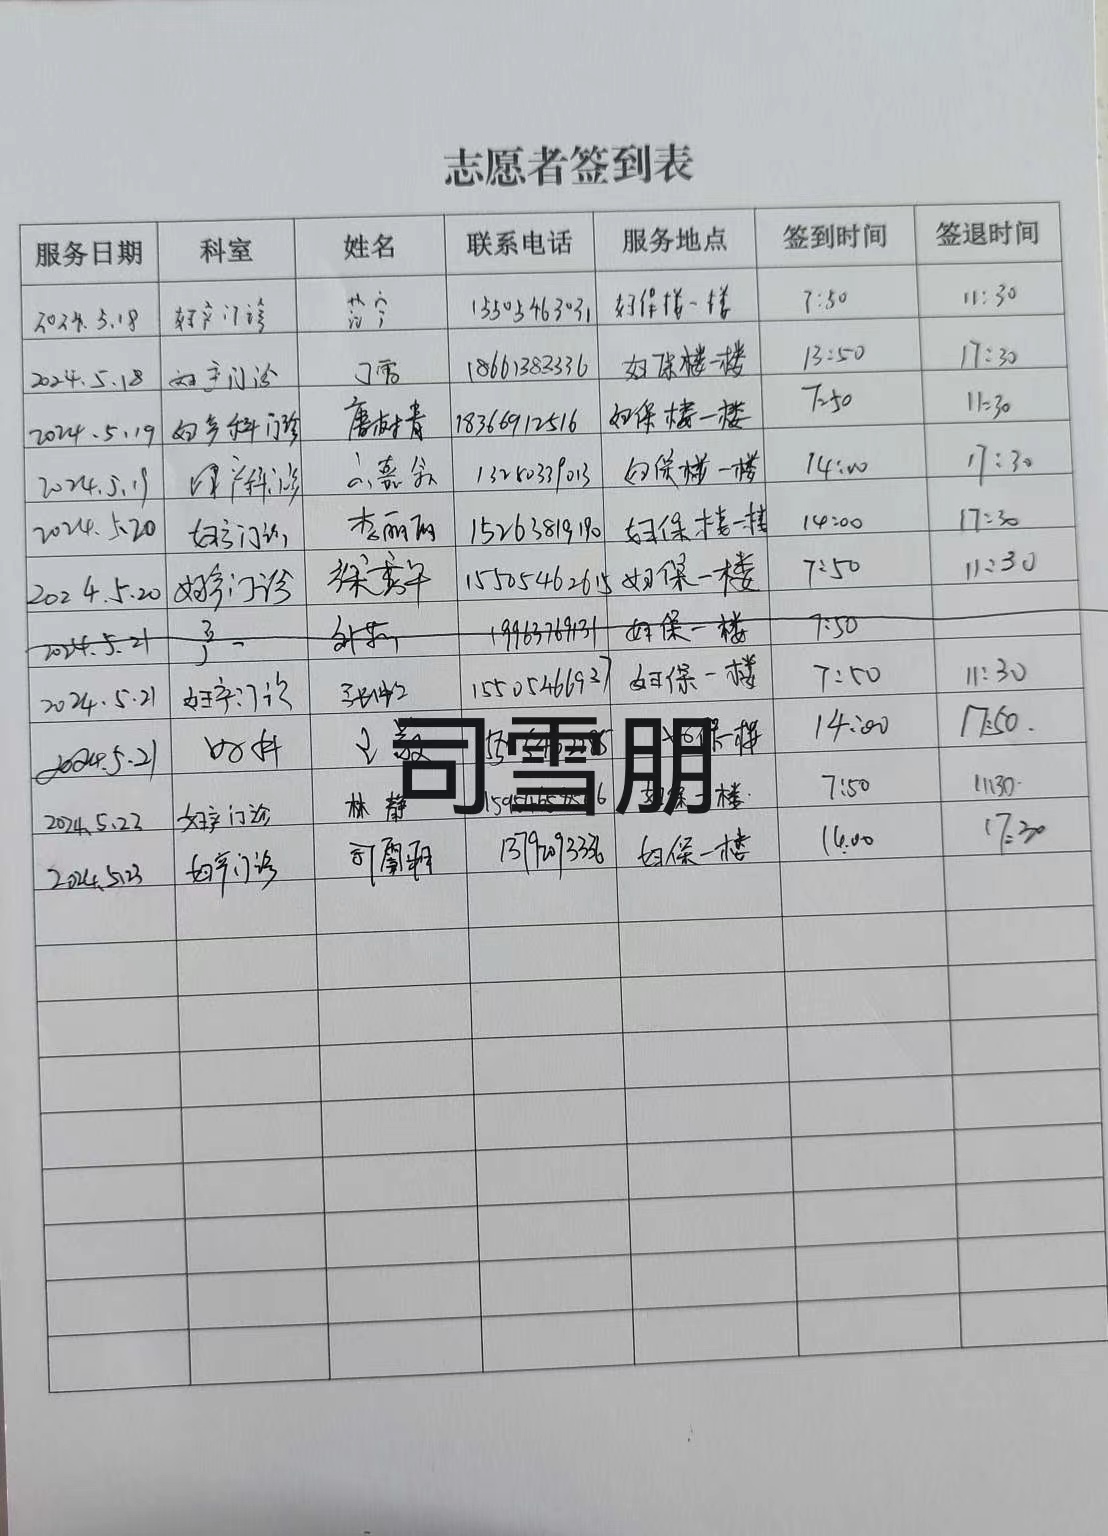 志愿者签到表
服务日期 科室 姓名 联系电话 服务地点 签到时间 签退时间
2024.5.18 妇产门诊 15505463031 妇保楼一楼 7:50 11:30
2024.5.18 妇产门诊 丁雪 18661383336 妇保楼一楼 13:50 17:30
2024.5.19 妇产科门诊 唐树青 18366912516 妇保楼一楼 7:50 11:30
2024.5.19 13280339013 妇保楼一楼 14:00 17:30
2024.5.20 妇产门诊 李丽丽 15263819190 妇保楼一楼 14:00 17:30
2024.5.20 妇产门诊 15505462615 妇保一楼 7:50 11:30
2024.5.21 19963769131 妇保一楼 7:50
2024.5.21 妇产门诊 15505466927 妇保一楼 7:50 11:30
2024.5.21 妇科 妇保一楼 14:00 17:50.
司雪朋
2024.5.23 妇产门诊 林静 妇保一楼 7:50 11:30
2024.5.23 妇产门诊 司雪朋 13792093336 妇保一楼 14:00 17:30